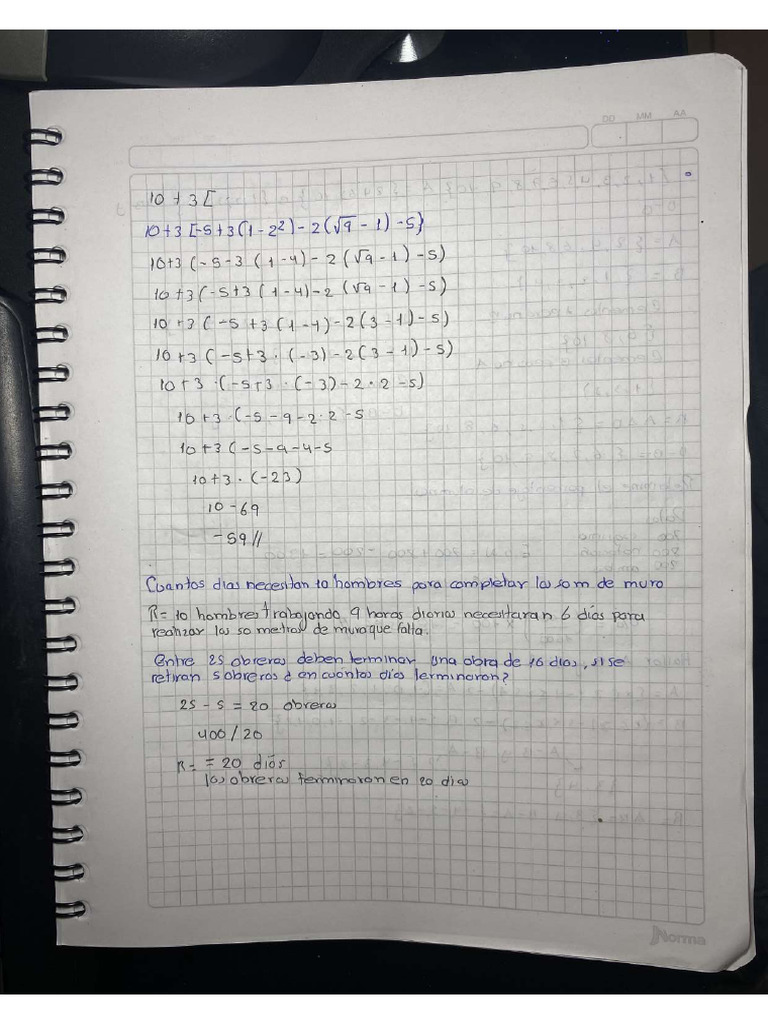 DD MM AA
10 + 3 [
10+3 [-5+3(1-2²)-2(√9-1)-5}
10+3(-5-3 (1-4)-2(√9-1)-5)
10+3(-5+3 (1-4)-2(√9-1)-5)
10+3(-5+3(1-4)-2(3-1)-5)
10+3(-5+3·(-3)-2(3-1)-5)
10+3·(-5+3·(-3)-2·2-5)
10+3·(-5-9-2·2-5
10+3(-5-9-4-5
10+3·(-23)
10-69
-59//
Cuantos dias necesitan 10 hombres para completar los 50m de muro
R= 10 hombres trabajando 9 horas diarias necesitaran 6 días para
realizar los 50 metros de muro que falta.
Entre 25 obreros deben terminar una obra de 16 dias, si se
retiran 5 obreros ¿ en cuántos días terminaron?
25-5=20 obreros
400/20
R= = 20 diás
los obreros terminaron en 20 dias
Norma